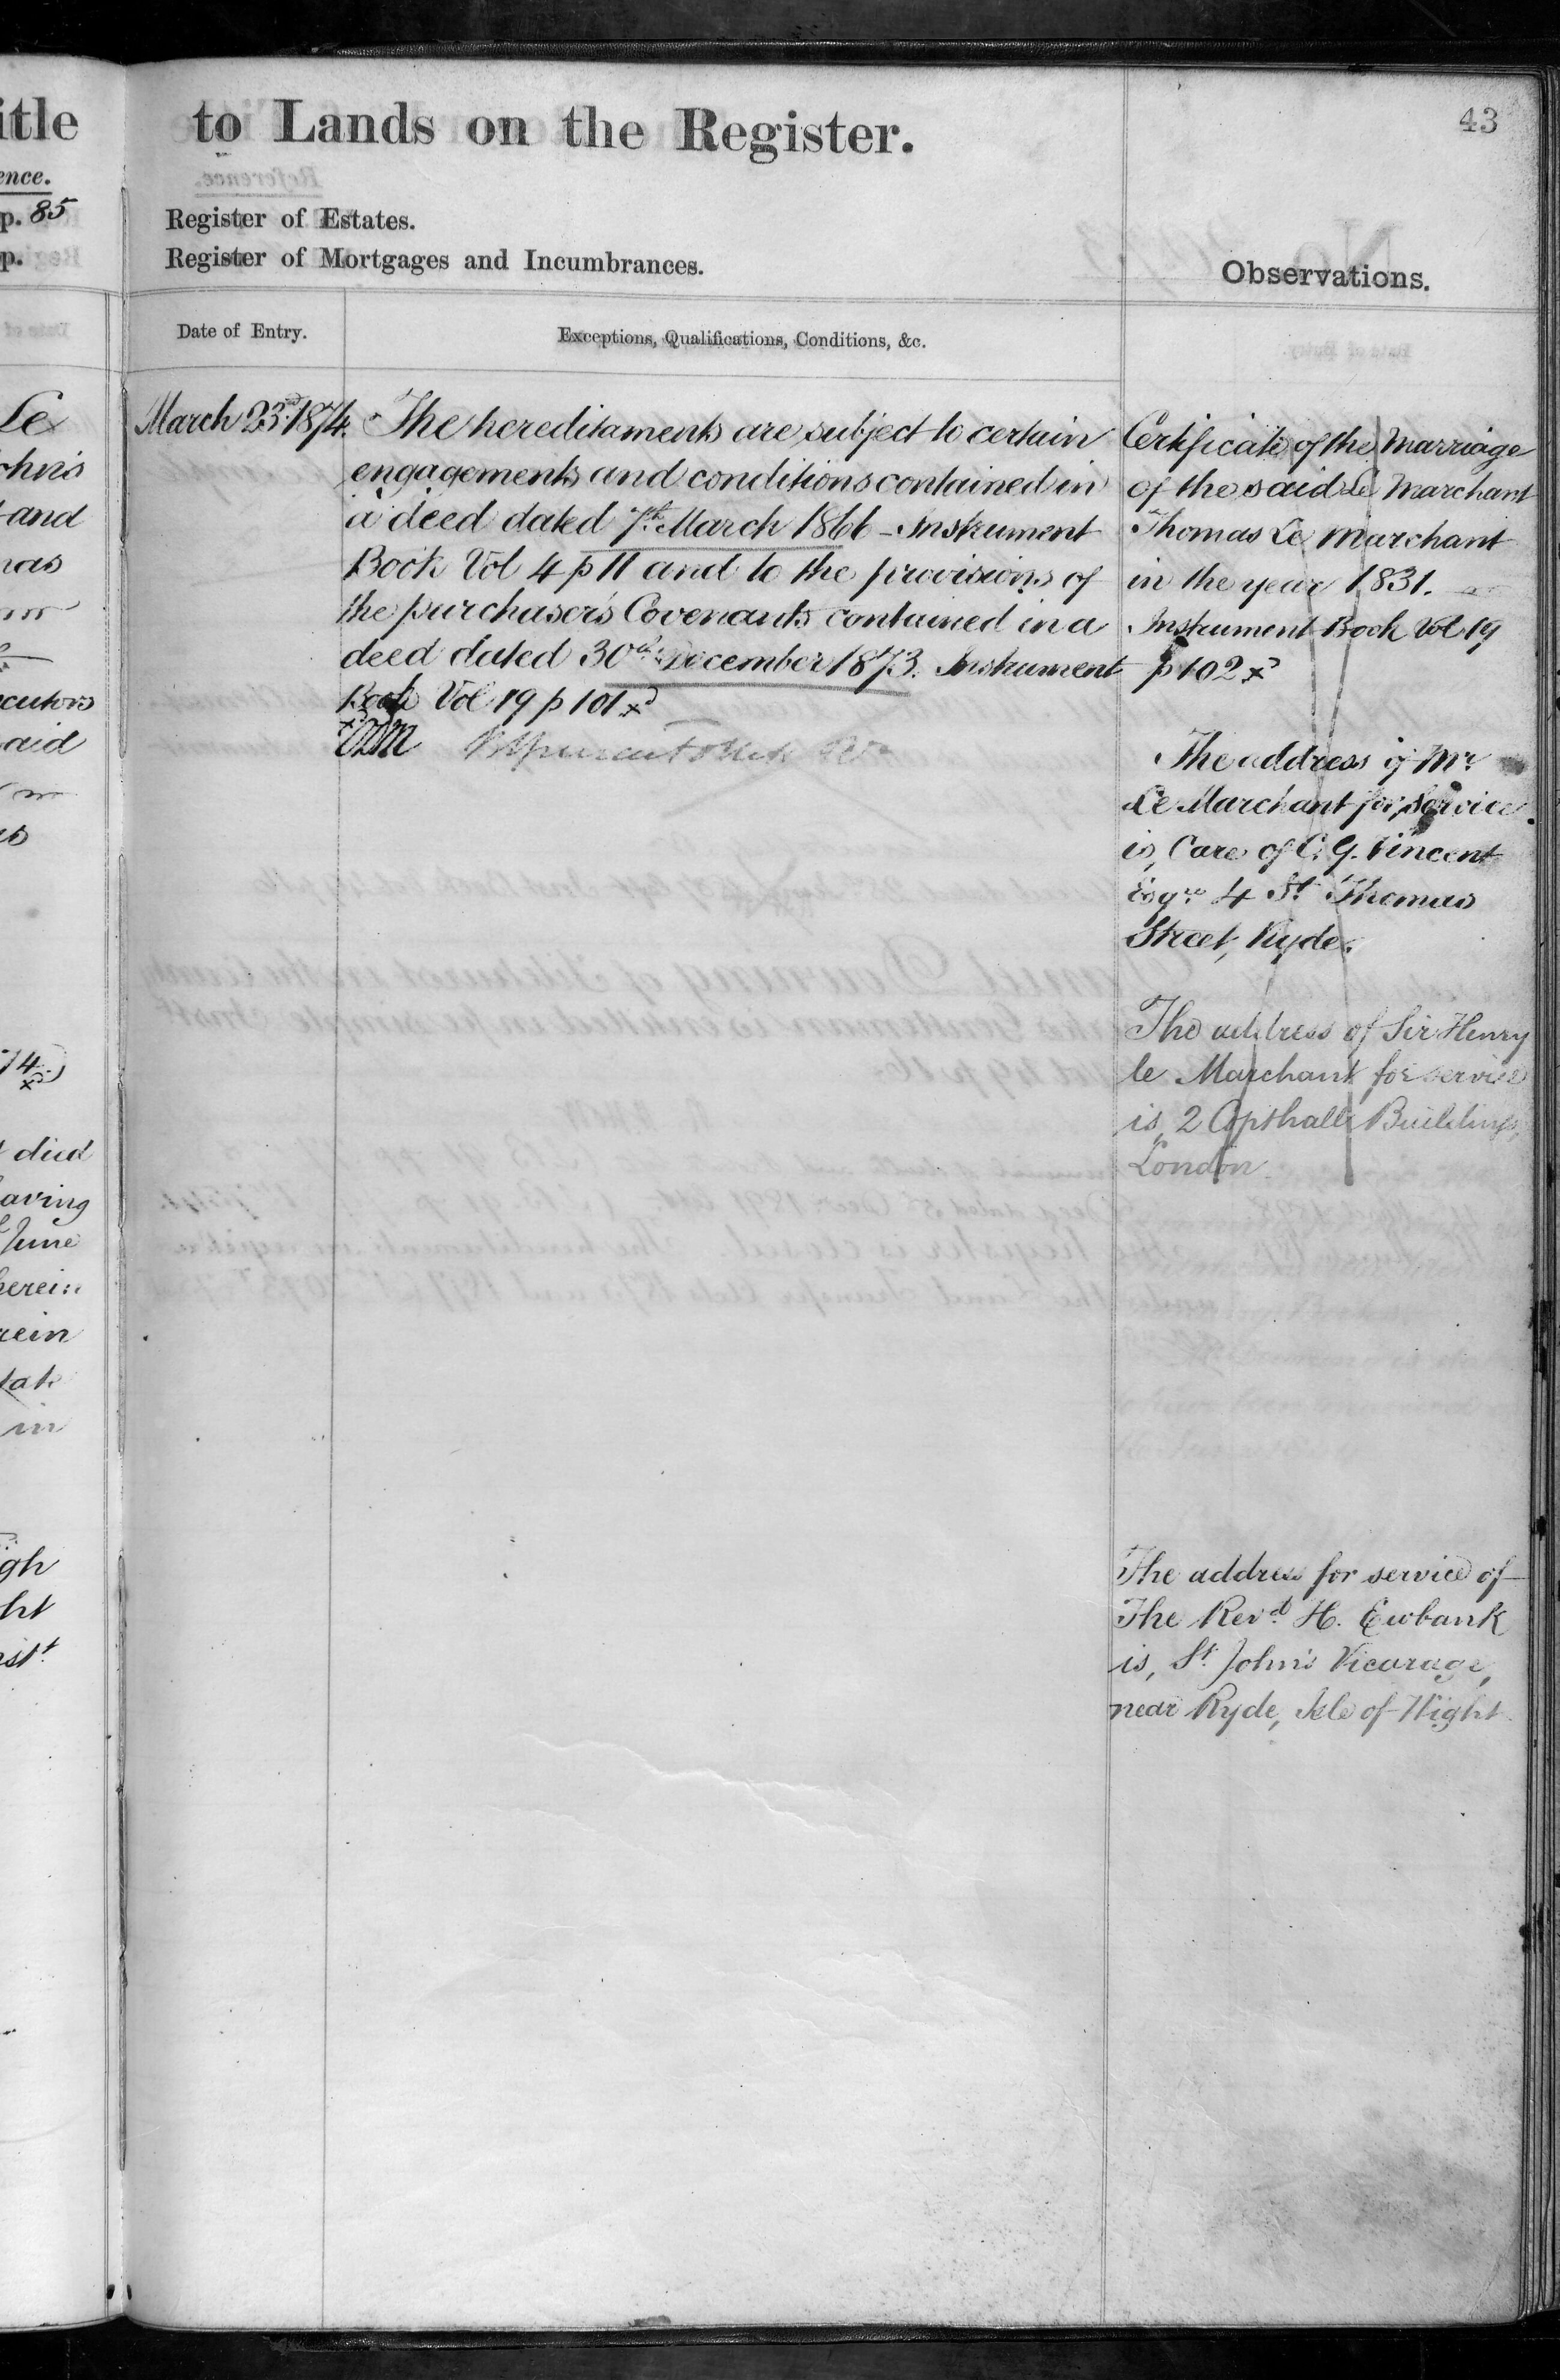 itle
ence.
p. 85
p.
Le
ohn's
and
has
ecutors
aid
74
died
aving
June
herein
rein
in
gh
ht
to Lands on the Register.
43
Register of Estates.
Register of Mortgages and Incumbrances.
Observations.
Date of Entry.
Exceptions, Qualifications, Conditions, &c.
March 23rd 1874.
The hereditaments are subject to certain
engagements and conditions contained in
a deed dated 7th March 1866 - Instrument
Book Vol 4 p 11 and to the provisions of
the purchaser's Covenants contained in a
deed dated 30th December 1873. Instrument
Book Vol 19 p 101
Certificate of the Marriage
of the said Le Marchant
Thomas Le Marchant
in the year 1831.
Instrument Book Vol 19
p 102
The address of Mr
Le Marchant for service
is, Care of C. G. Vincent
Esqre 4 St Thomas
Street, Ryde.
The address of Sir Henry
le Marchant for service
is, 2 Copthall Buildings,
London.
The address for service of
The Revd H. Ewbank
is, St John's Vicarage,
near Ryde, Isle of Wight.